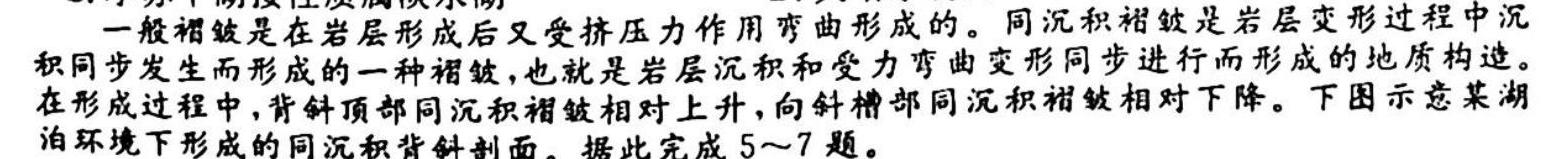 一般褶皱是在岩层形成后又受挤压力作用弯曲形成的。同沉积褶皱是岩层变形过程中沉
积同步发生而形成的一种褶皱,也就是岩层沉积和受力弯曲变形同步进行而形成的地质构造。
在形成过程中,背斜顶部同沉积褶皱相对上升,向斜槽部同沉积褶皱相对下降。下图示意某湖
泊环境下形成的同沉积背斜剖面。据此完成5～7题。